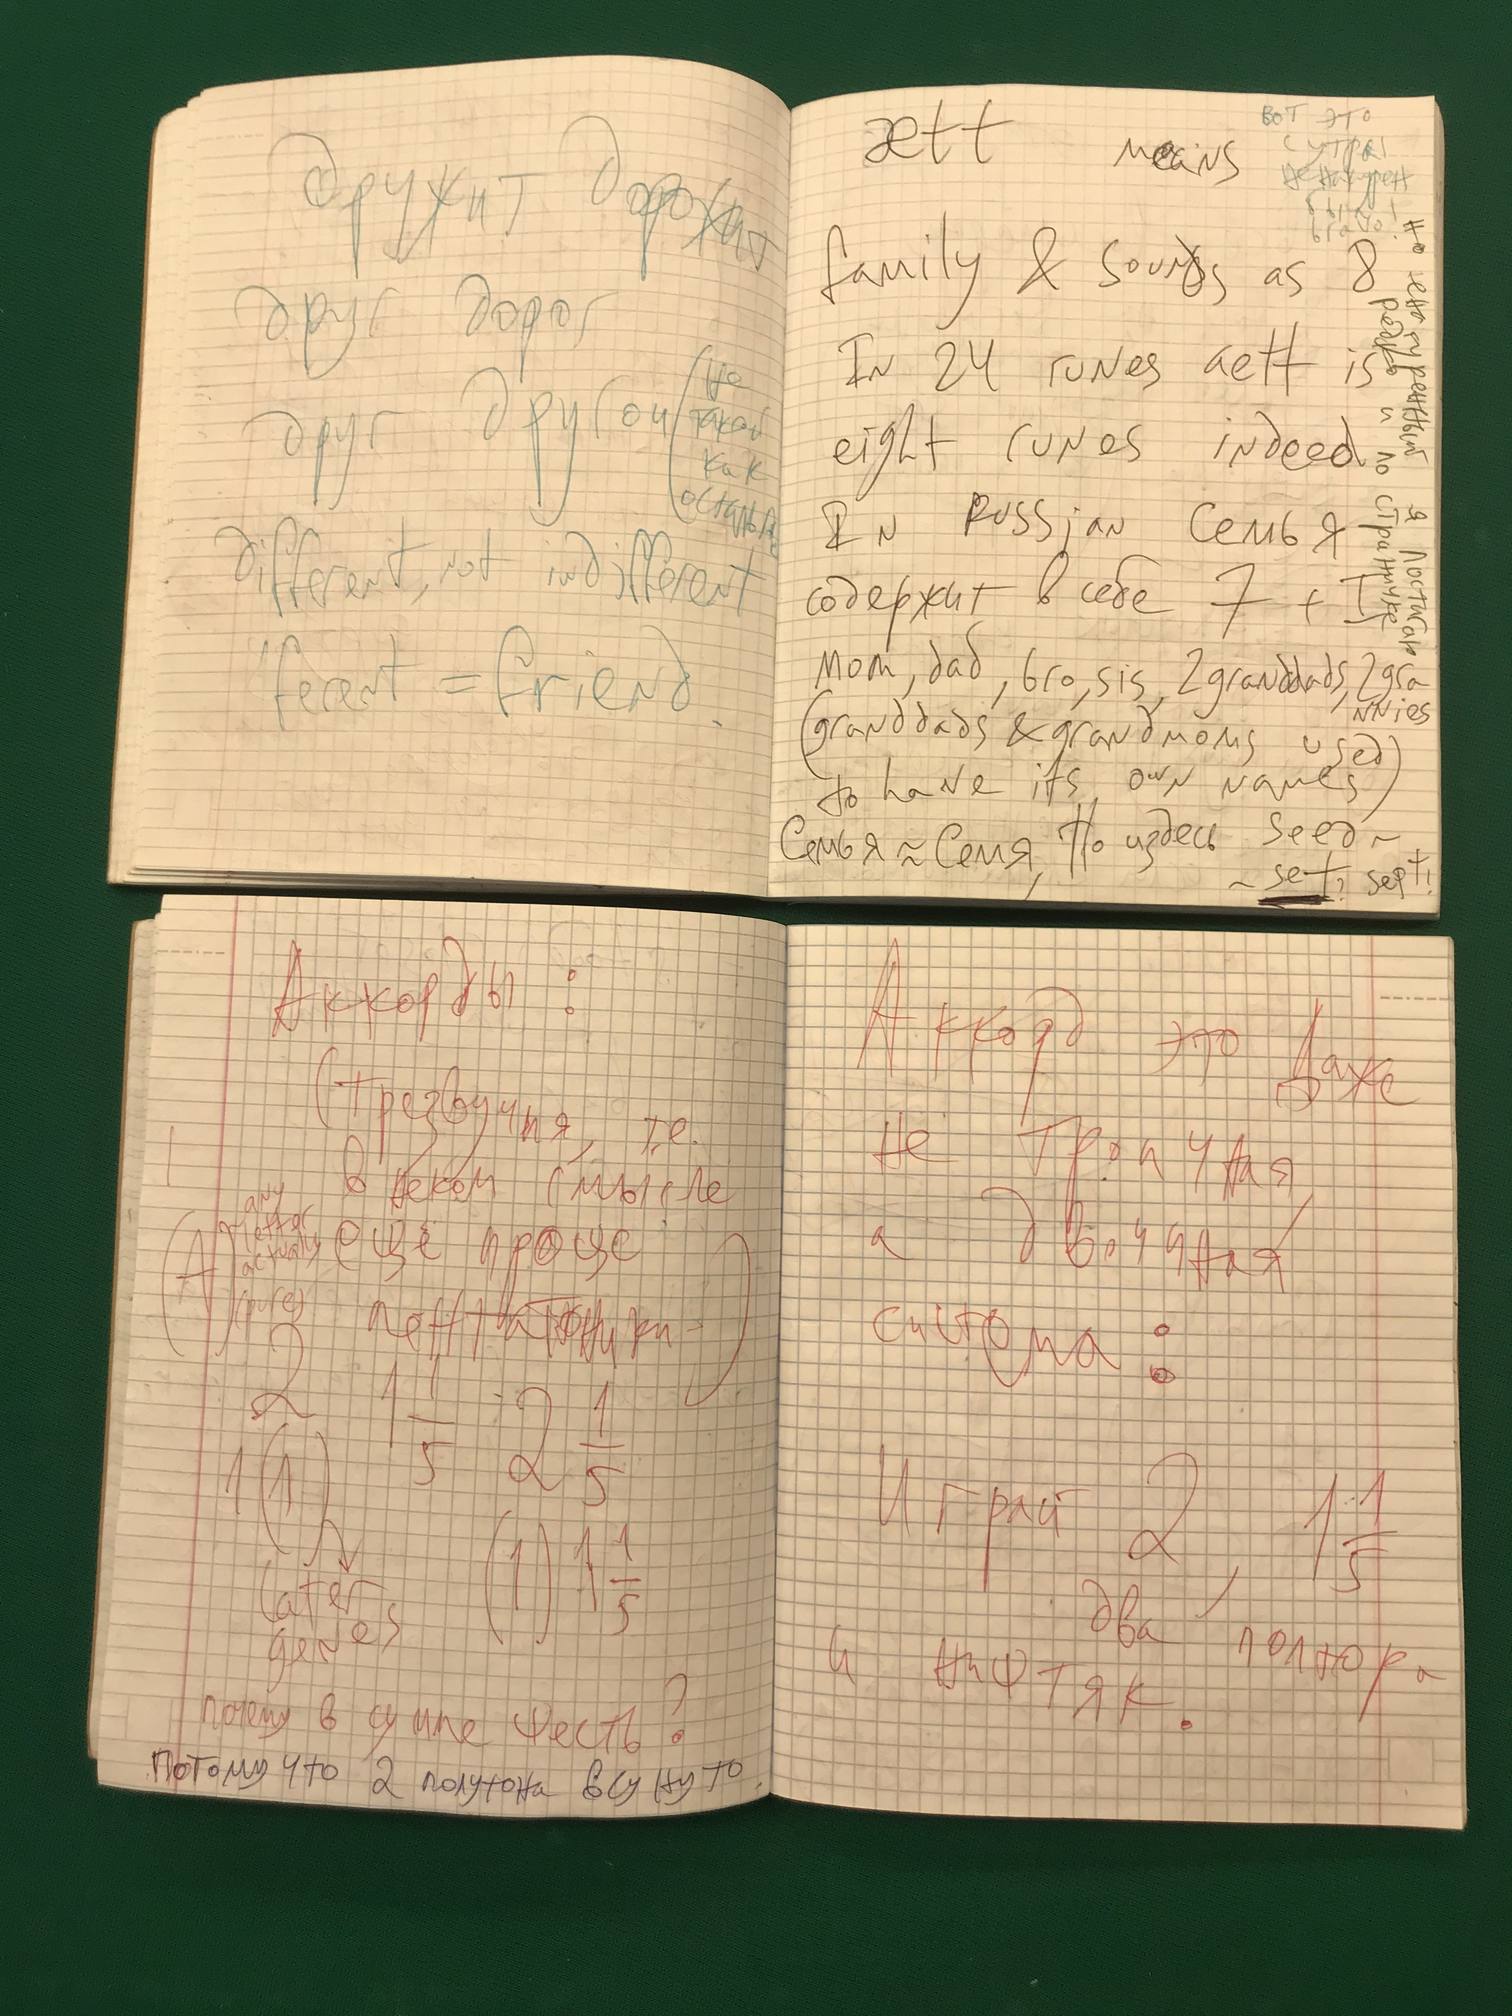 дружит дорожит
друг дорог
друг другой (не
такой
как
остальные
different, not indifferent
ferent = friend.
ætt means
вот это
с утра
я
не накурен
было!
bravo!
family & sounds as 8
In 24 runes aett is
eight runes indeed.
In Russian Семья
содержит в себе 7 + I
mom, dad, bro, sis, 2granddads, 2gra
nnies
(granddads & grandmoms used)
to have its own names)
Семья ≈ Семя, Но здесь seed ~
~ set, sept!
но ненакуренный я постигаю
редко и по страничке
Аккорды :
(трезвучия, т.е.
в неком смысле
ещё проще
пентатоники)
(A) any
letter
actually
(pure)
2 1 1/5 2 1/5
1(1) (1) 1 1/5
later
genes
почему в сумме шесть?
Потому что 2 полутона всунуто.
Аккорд это даже
не троичная
а двоичная
система :
Играй 2, 1 1/5
два, полтора
и ништяк.